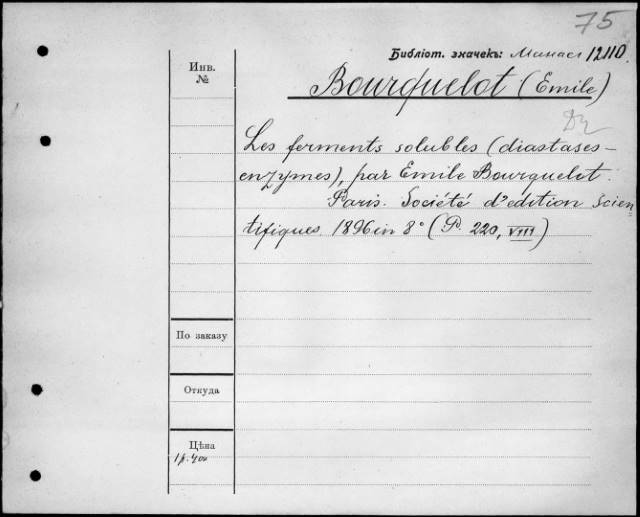 75
Библіот. значекъ: 12110
Инв.
№
Bourquelot (Emile)
Les ferments solubles (diastases-
enzymes), par Emile Bourquelot.
Paris. Société d'edition Scien
tifiques 1896 in 8° (P. 220, VIII)
По заказу
Откуда
Цѣна